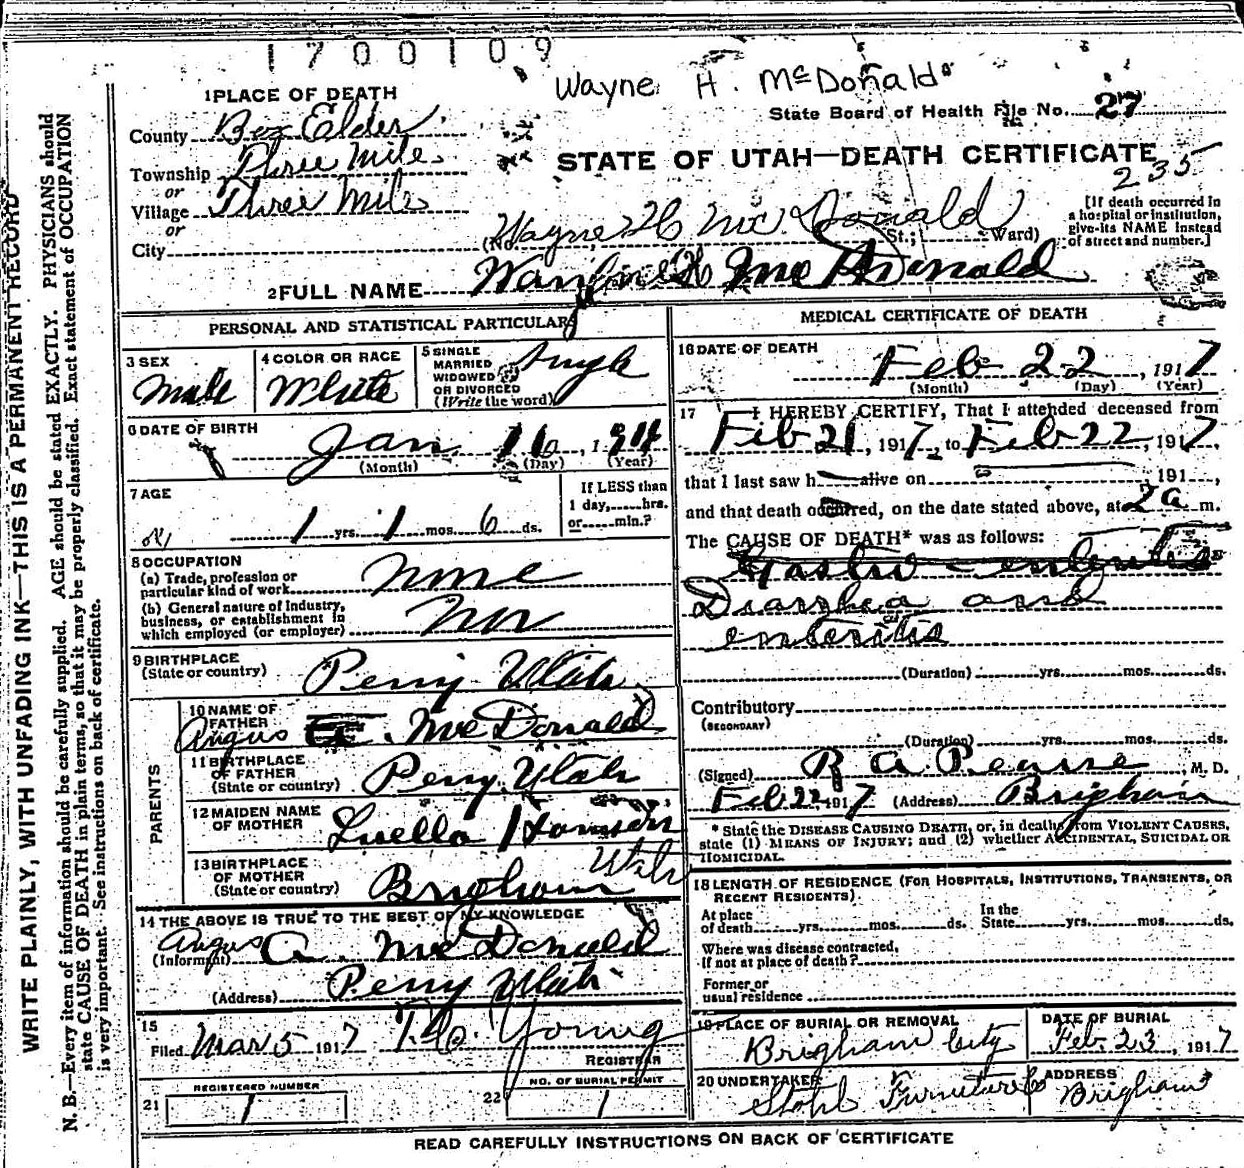 1700109
Wayne H. McDonald
State Board of Health File No. 27
STATE OF UTAH—DEATH CERTIFICATE
235
1 PLACE OF DEATH
County Box Elder
Township Three Mile
or
Village Three Mile
or
City
Wayne H Mc Donald
(No. St.; Ward)
[If death occurred in
a hospital or institution,
give its NAME instead
of street and number.]
2 FULL NAME H McDonald
PERSONAL AND STATISTICAL PARTICULARS
3 SEX
Male
4 COLOR OR RACE
White
5 SINGLE
MARRIED
WIDOWED
OR DIVORCED
(Write the word)
Single
6 DATE OF BIRTH
Jan. 16, 191
(Month) (Day) (Year)
7 AGE
1 yrs. 1 mos. 6 ds.
If LESS than
1 day,.....hrs.
or.....min.?
8 OCCUPATION
(a) Trade, profession or
particular kind of work None
(b) General nature of Industry,
business, or establishment in
which employed (or employer)
9 BIRTHPLACE
(State or country) Perry Utah
PARENTS
10 NAME OF
FATHER
Angus McDonald
11 BIRTHPLACE
OF FATHER
(State or country) Perry Utah
12 MAIDEN NAME
OF MOTHER Luella
13 BIRTHPLACE
OF MOTHER
(State or country) Brigham Utah
14 THE ABOVE IS TRUE TO THE BEST OF MY KNOWLEDGE
(Informant) Angus A. McDonald
(Address) Perry Utah
15
Filed Mar 5 1917 Young
REGISTRAR
REGISTERED NUMBER
21 1
NO. OF BURIAL PERMIT
22 1
MEDICAL CERTIFICATE OF DEATH
16 DATE OF DEATH
Feb 22, 1917
(Month) (Day) (Year)
17 I HEREBY CERTIFY, That I attended deceased from
Feb 21, 1917, to Feb 22, 1917,
that I last saw h alive on 191 ,
and that death occurred, on the date stated above, at 2 a m.
The CAUSE OF DEATH* was as follows:
Gastro-enteritis
Diarrhea and
enteritis
(Duration) yrs. mos. ds.
Contributory
(SECONDARY)
(Duration) yrs. mos. ds.
(Signed) R A Pearse M. D.
Feb 22 1917 (Address) Brigham
* State the DISEASE CAUSING DEATH, or, in deaths from VIOLENT CAUSES,
state (1) MEANS OF INJURY; and (2) whether ACCIDENTAL, SUICIDAL OR
HOMICIDAL.
18 LENGTH OF RESIDENCE (FOR HOSPITALS, INSTITUTIONS, TRANSIENTS, OR
RECENT RESIDENTS).
At place
of death yrs. mos. ds.
In the
State yrs. mos. ds.
Where was disease contracted,
If not at place of death?
Former or
usual residence
19 PLACE OF BURIAL OR REMOVAL
Brigham City
DATE OF BURIAL
Feb. 23, 1917
20 UNDERTAKER
Stohl Furniture Co
ADDRESS
Brigham
READ CAREFULLY INSTRUCTIONS ON BACK OF CERTIFICATE
WRITE PLAINLY, WITH UNFADING INK—THIS IS A PERMANENT RECORD
N. B.—Every item of information should be carefully supplied. AGE should be stated EXACTLY. PHYSICIANS should
state CAUSE OF DEATH in plain terms, so that it may be properly classified. Exact statement of OCCUPATION
is very important. See instructions on back of certificate.